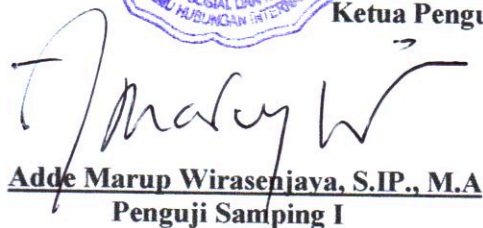 HUBUNGAN INTER
Ketua Pengu
Adde Marup Wirasenjaya, S.IP., M.A
Penguji Samping I